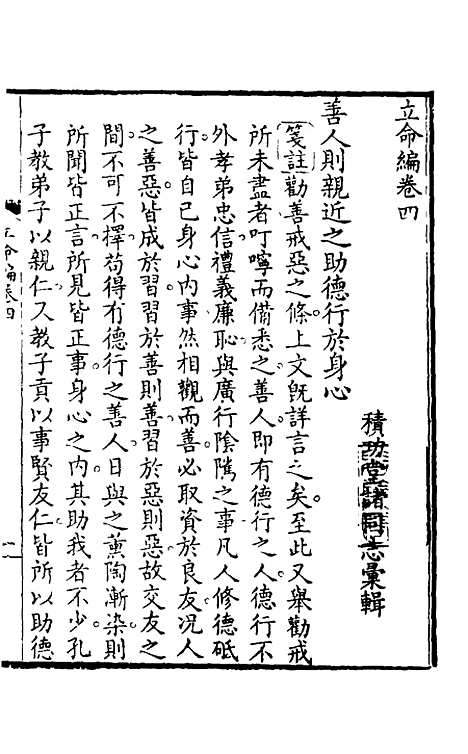 立命編卷四
積功堂諸同志彙輯
善人則親近之助德行於身心
箋註勸善戒惡之條上文旣詳言之矣至此又舉勸戒
所未盡者叮嚀而備悉之善人即有德行之人德行不
外孝弟忠信禮義廉恥與廣行陰隲之事凡人修德砥
行皆自己身心內事然相觀而善必取資於良友况人
之善惡皆成於習習於善則善習於惡則惡故交友之
間不可不擇苟得有德行之善人日與之薰陶漸染則
所聞皆正言所見皆正事身心之內其助我者不少孔
子教弟子以親仁又教子貢以事賢友仁皆所以助德
立命編卷四
一